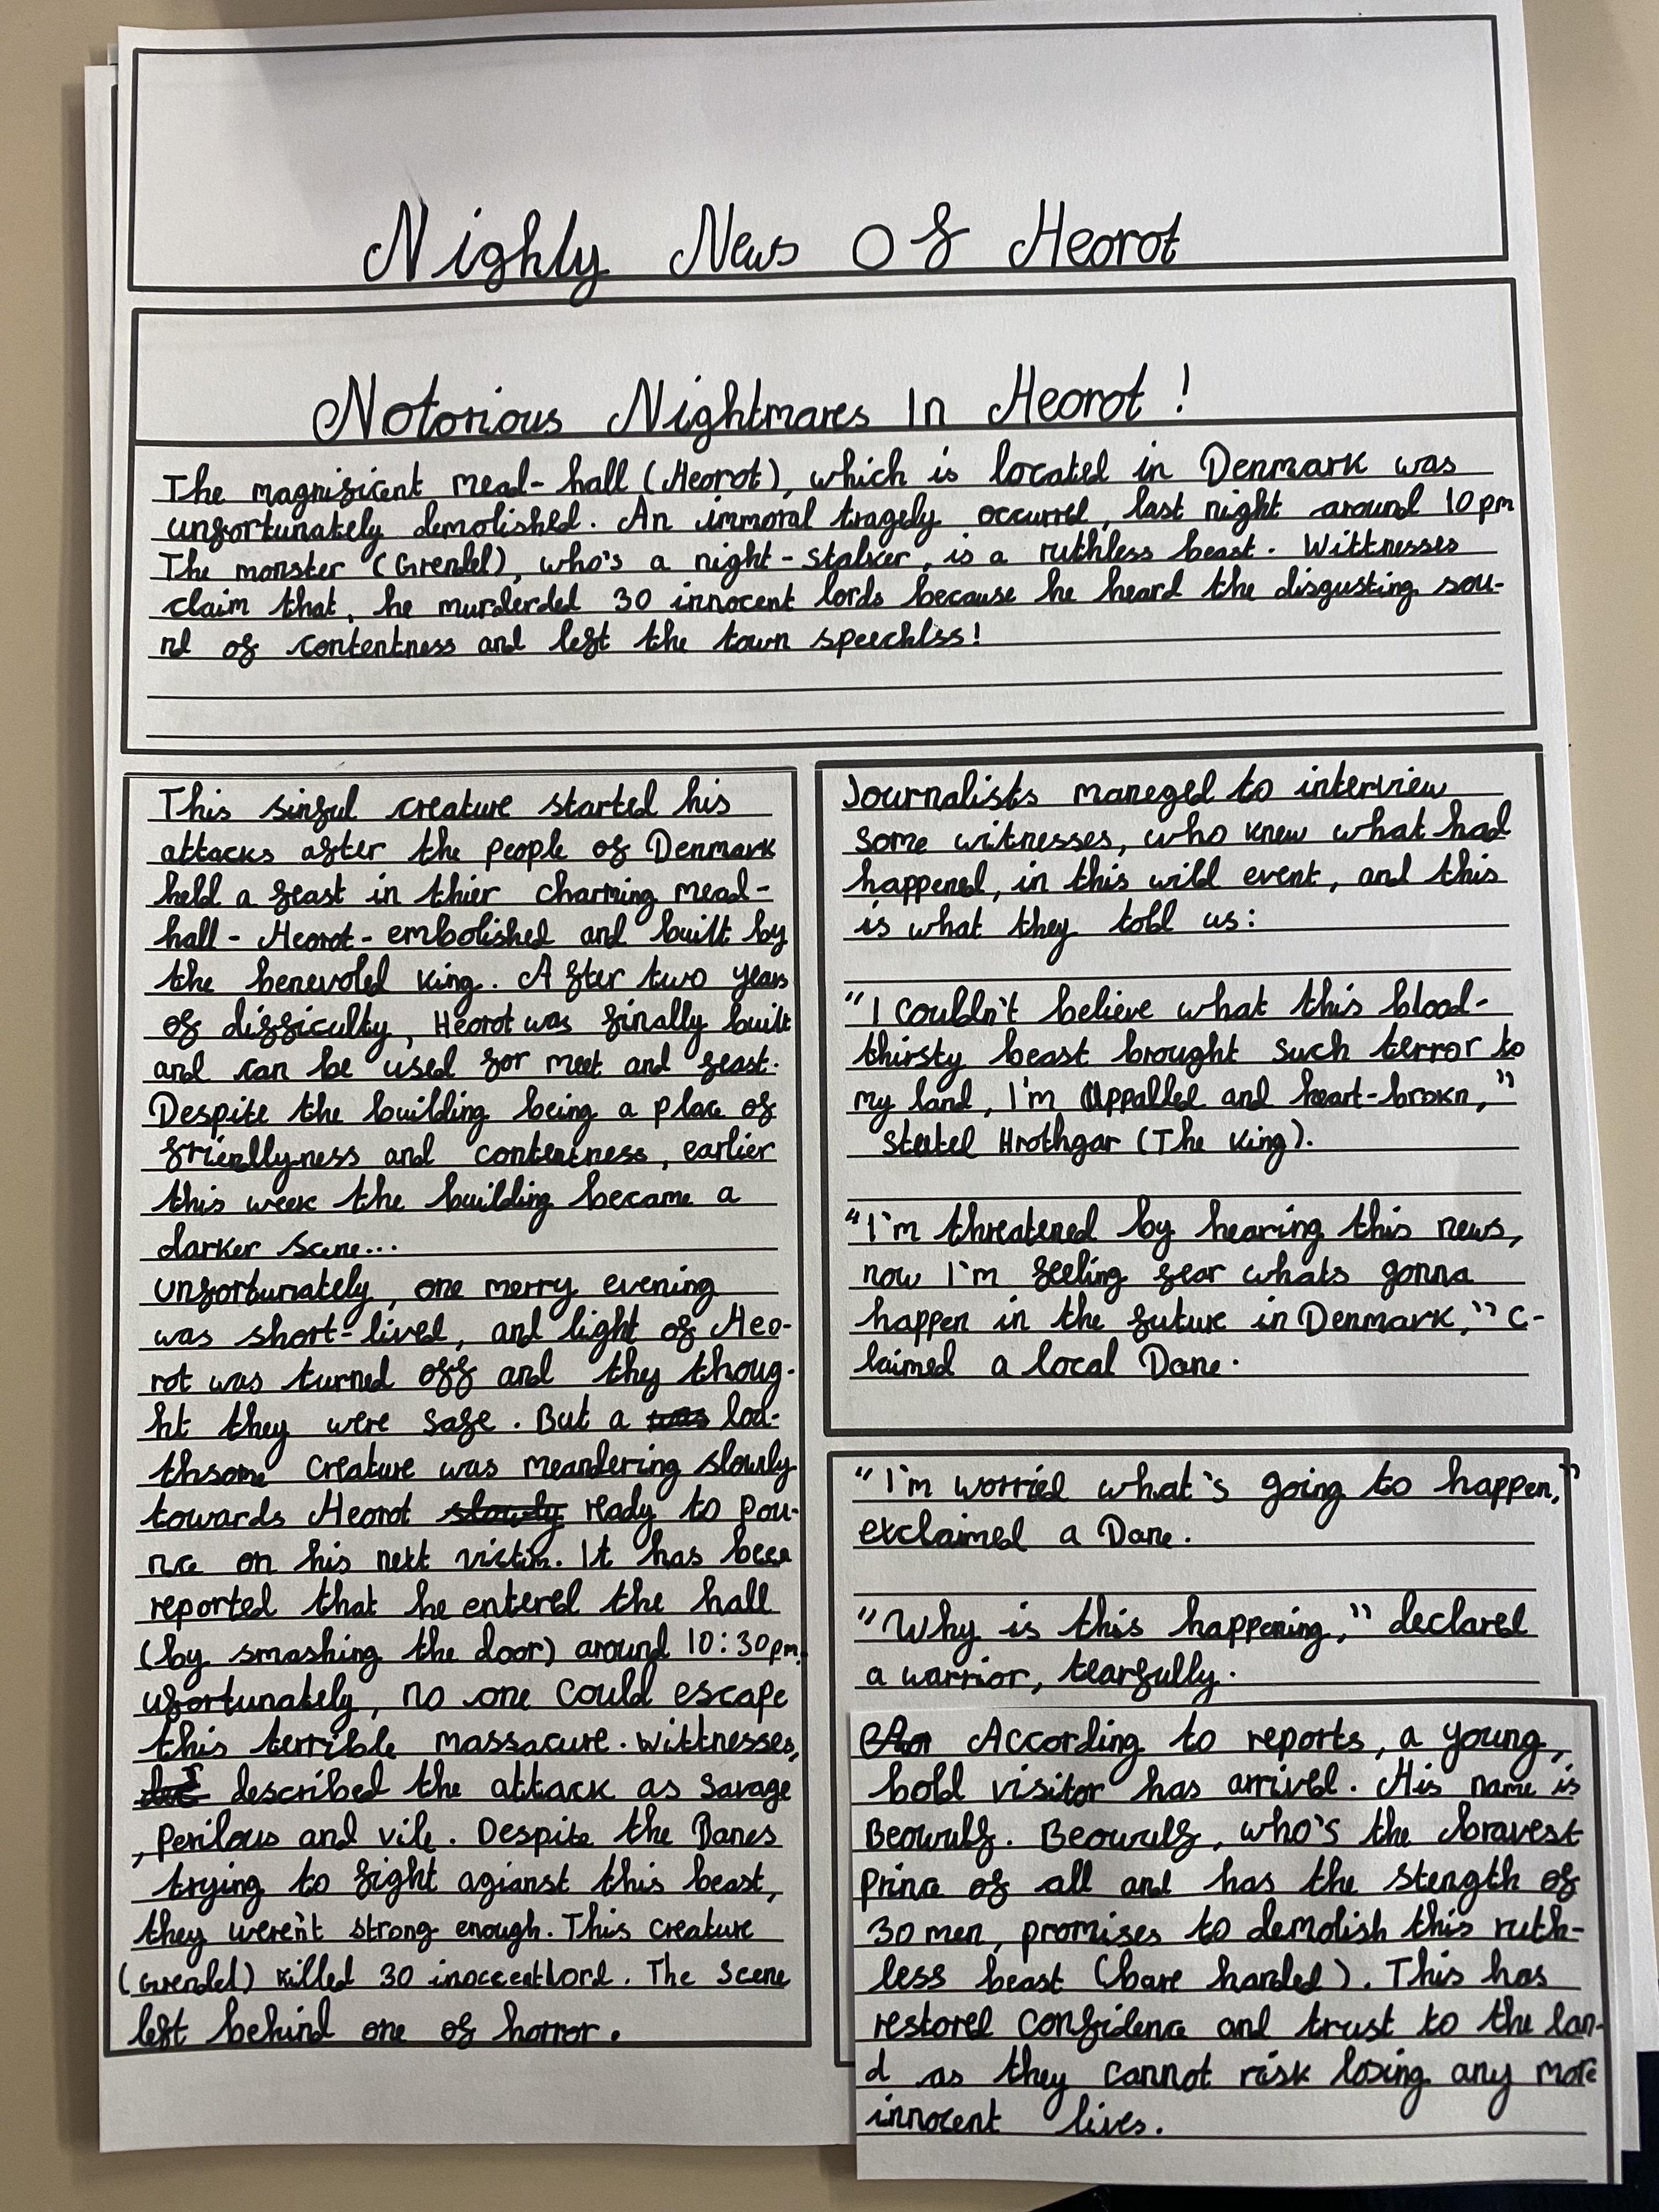 Nighly News Of Heorot
Notorious Nightmares In Heorot!
The magnificent mead-hall (Heorot), which is located in Denmark was
unfortunately demolished. An immoral tragedy occurred, last night around 10pm
The monster (Grendel), who's a night-stalker, is a ruthless beast. Wittnesses
claim that, he murderded 30 innocent lords because he heard the disgusting sou-
nd of contentness and left the town speechlss!
This sinful creature started his
attacks after the people of Denmark
held a feast in thier charming mead-
hall - Heorot - embolished and built by
the benevoled king. After two years
of difficulty, Heorot was finally built
and can be used for meet and feast.
Despite the building being a place of
friendlyness and contentness, earlier
this week the building became a
darker scene...
unfortunately, one merry evening
was short-lived, and light of Heo-
rot was turned off and they thoug-
ht they were safe. But a loa-
thsome creature was meandering slowly
towards Heorot slowly ready to pou-
nce on his next victim. It has been
reported that he entered the hall
(by smashing the door) around 10:30pm.
ufortunately, no one could escape
this terrible massacure. Wittnesses,
described the attack as savage
, perilous and vile. Despite the Danes
trying to fight agianst this beast,
they weren't strong enough. This creature
(Grendel) killed 30 inoccent lord. The scene
left behind one of horror.
Journalists maneged to interview
some witnesses, who knew what had
happened, in this wild event, and this
is what they told us:
"I couldn't believe what this blood-
thirsty beast brought such terror to
my land, I'm appalled and heart-broken,"
stated Hrothgar (The king).
"I'm threatened by hearing this news,
now I'm feeling fear whats gonna
happen in the future in Denmark," c-
laimed a local Dane.
"I'm worried what's going to happen,"
exclaimed a Dane.
"Why is this happening," declared
a warrior, tearfully.
According to reports, a young,
bold visitor has arrived. His name is
Beowulf. Beowulf, who's the bravest
prince of all and has the stength of
30 men, promises to demolish this ruth-
less beast (bare handed). This has
restored confidence and trust to the lan-
d as they cannot risk losing any more
innocent lives.